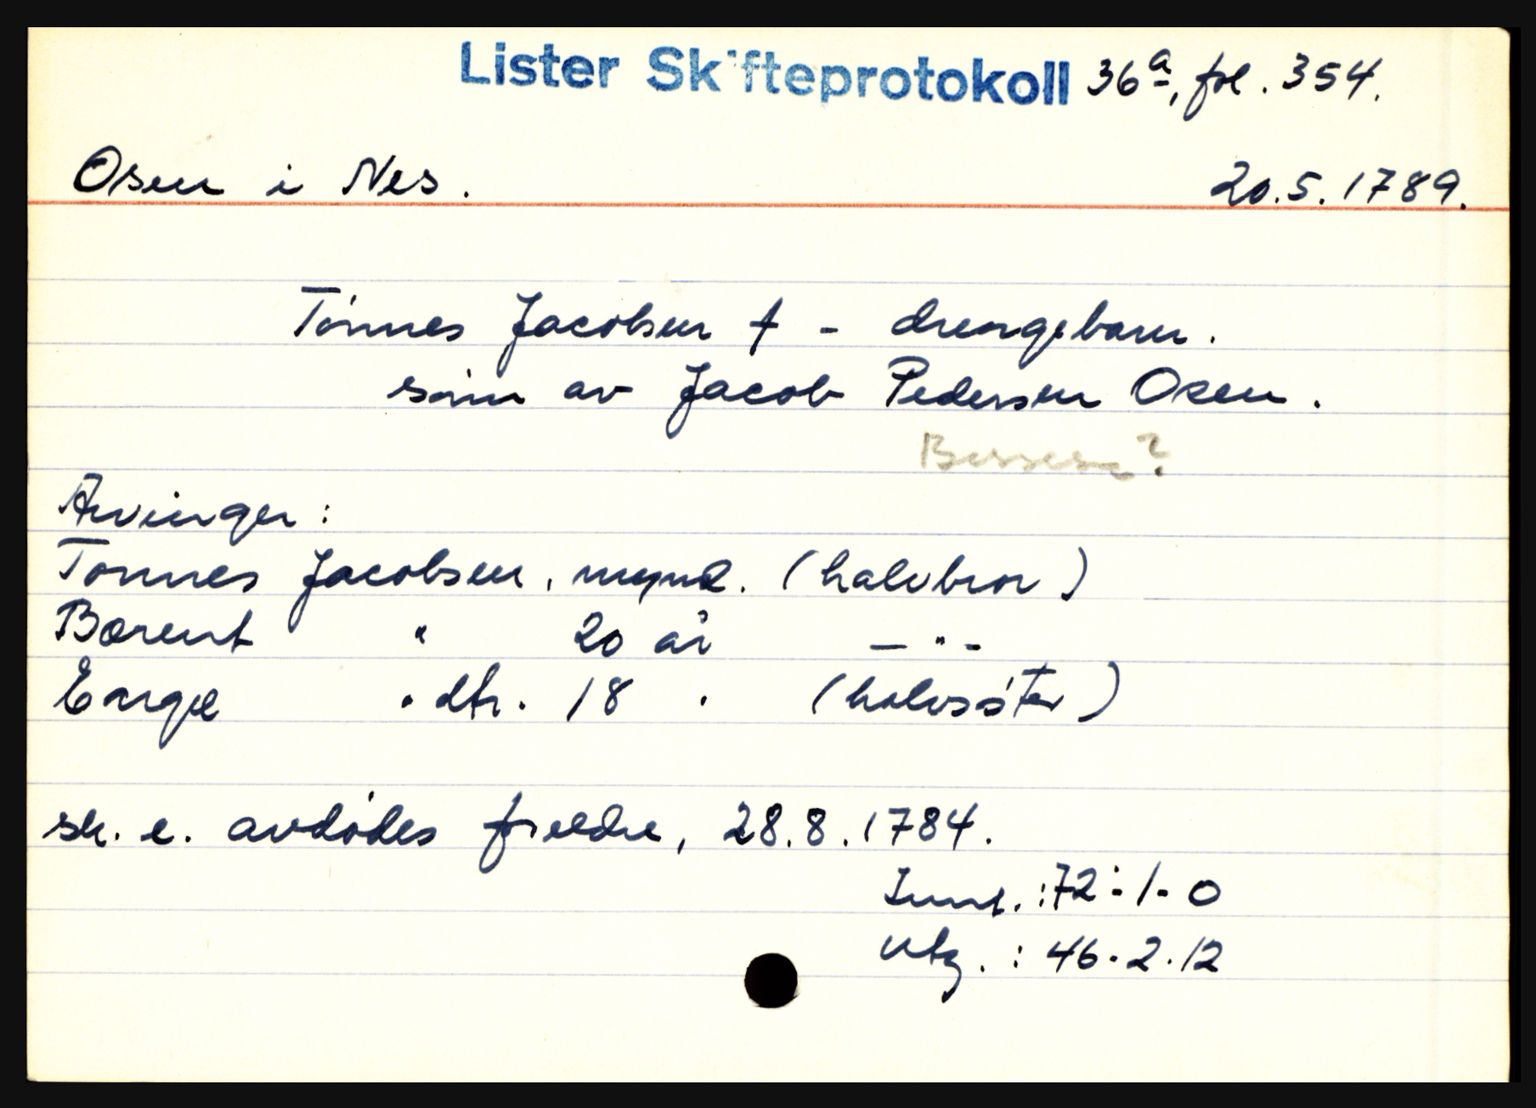 Lister Skifteprotokoll 36a, fol. 354.
Osen i Nes. 20.5.1789.
Tønnes Jacobsen † - drengebarn.
sønn av Jacob Pedersen Osen.
Arvinger:
Tønnes Jacobsen, mynd. (halvbror)
Børent " 20 år — " -
Engel " dtr. 18 " (halvsøster)
sk. e. avdødes foreldre, 28.8.1784.
Innt.: 72-1-0
Utg.: 46-2-12